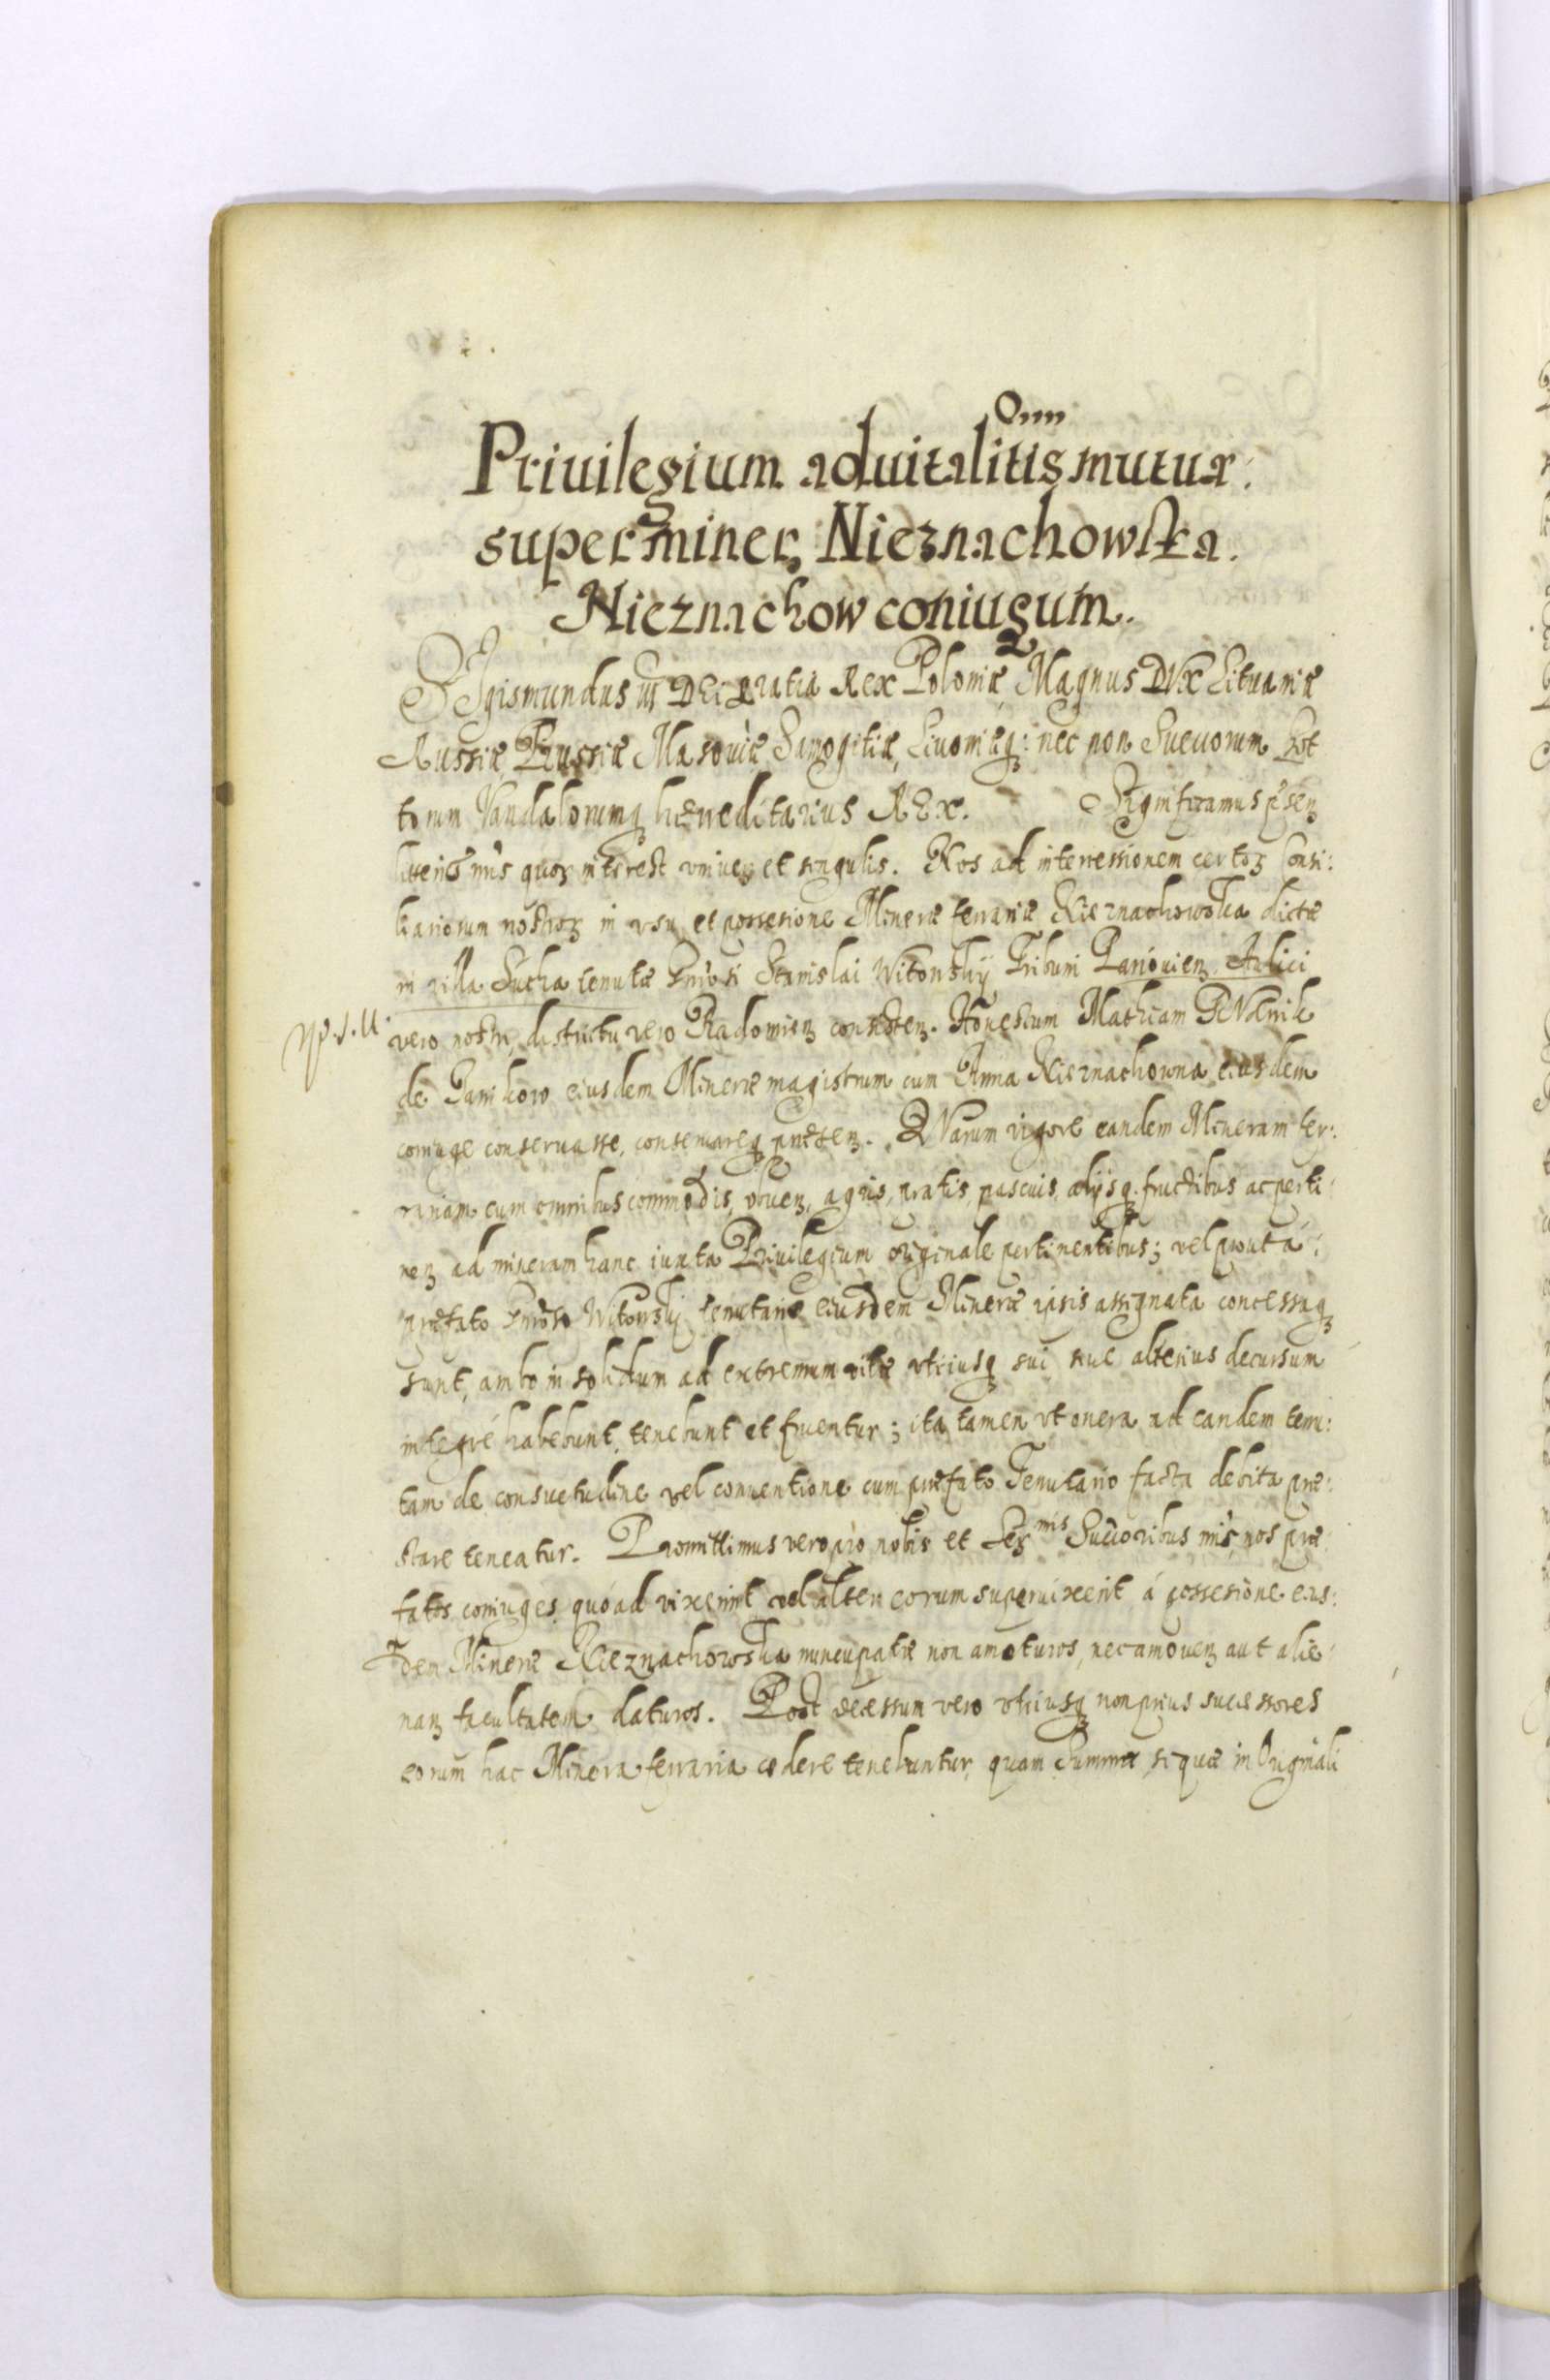 Priuilegium aduitalitis mutuæ:
super miner, Nieznachowska.
Nieznachow coniugum.
SIgismundus III DEI gratia Rex Poloniæ Magnus DVX Lituaniæ
Russiæ Prussiæ Masouiæ Samogitiæ, Liuoniæq; nec non Sueuorum Got
torum Vandalorumq hæreditarius REX. Significamus p̃sen
litteris nr̃is quoꝝ interest vniuer et singulis. Nos ad intercessionem certoꝝ Consi:
liariorum nostroꝝ in vsu et possesione Mineræ ferrariæ Nieznachowska dictæ
in villa Sucha tenutæ Stanislai Witowskij Tribuni Aulici
vero nostri, districtu vero Radomien consisten. Honestum Mathiam
de Janikow eiusdem Mineræ magistrum cum Anna Nieznachowna eiusdem
coniuge conseruasse, conseruareq præsen. QVarum vigore eandem Mineram fer:
rariam cum omnibus commodis, obuen, agris, pratis, pascuis, alijsq. fructibus ac perti
nen ad mineram hanc iuxta Priuilegium originale pertinentibus; vel prout á
præfato Witowskij tenutario eiusdem Mineræ ipsis assignata concessaq
sunt, ambo in solidum ad extremum vitæ vtriusq sui siue alterius decursum
integré habebunt, tenebunt et fruentur; ita tamen vt onera ad eandem tenu:
tam de consuetudine vel conuentione cum præfato Tenutario facta debita præ:
stare teneatur. Promittimus vero pro nobis et Ser nis Succoribus nr̃is, nos præ
fatos coniuges quóad vixerint vel alter eorum superuixerit á possesione eius:
dem Mineræ Nieznachowska nuncupatæ non amoturos, nec amouen aut alie:
nan facultatem daturos. Post decessum vero vtriusq non prius successores
eorum hac Minera ferraria cedere tenebuntur, quam Summæ, si quæ in Originali